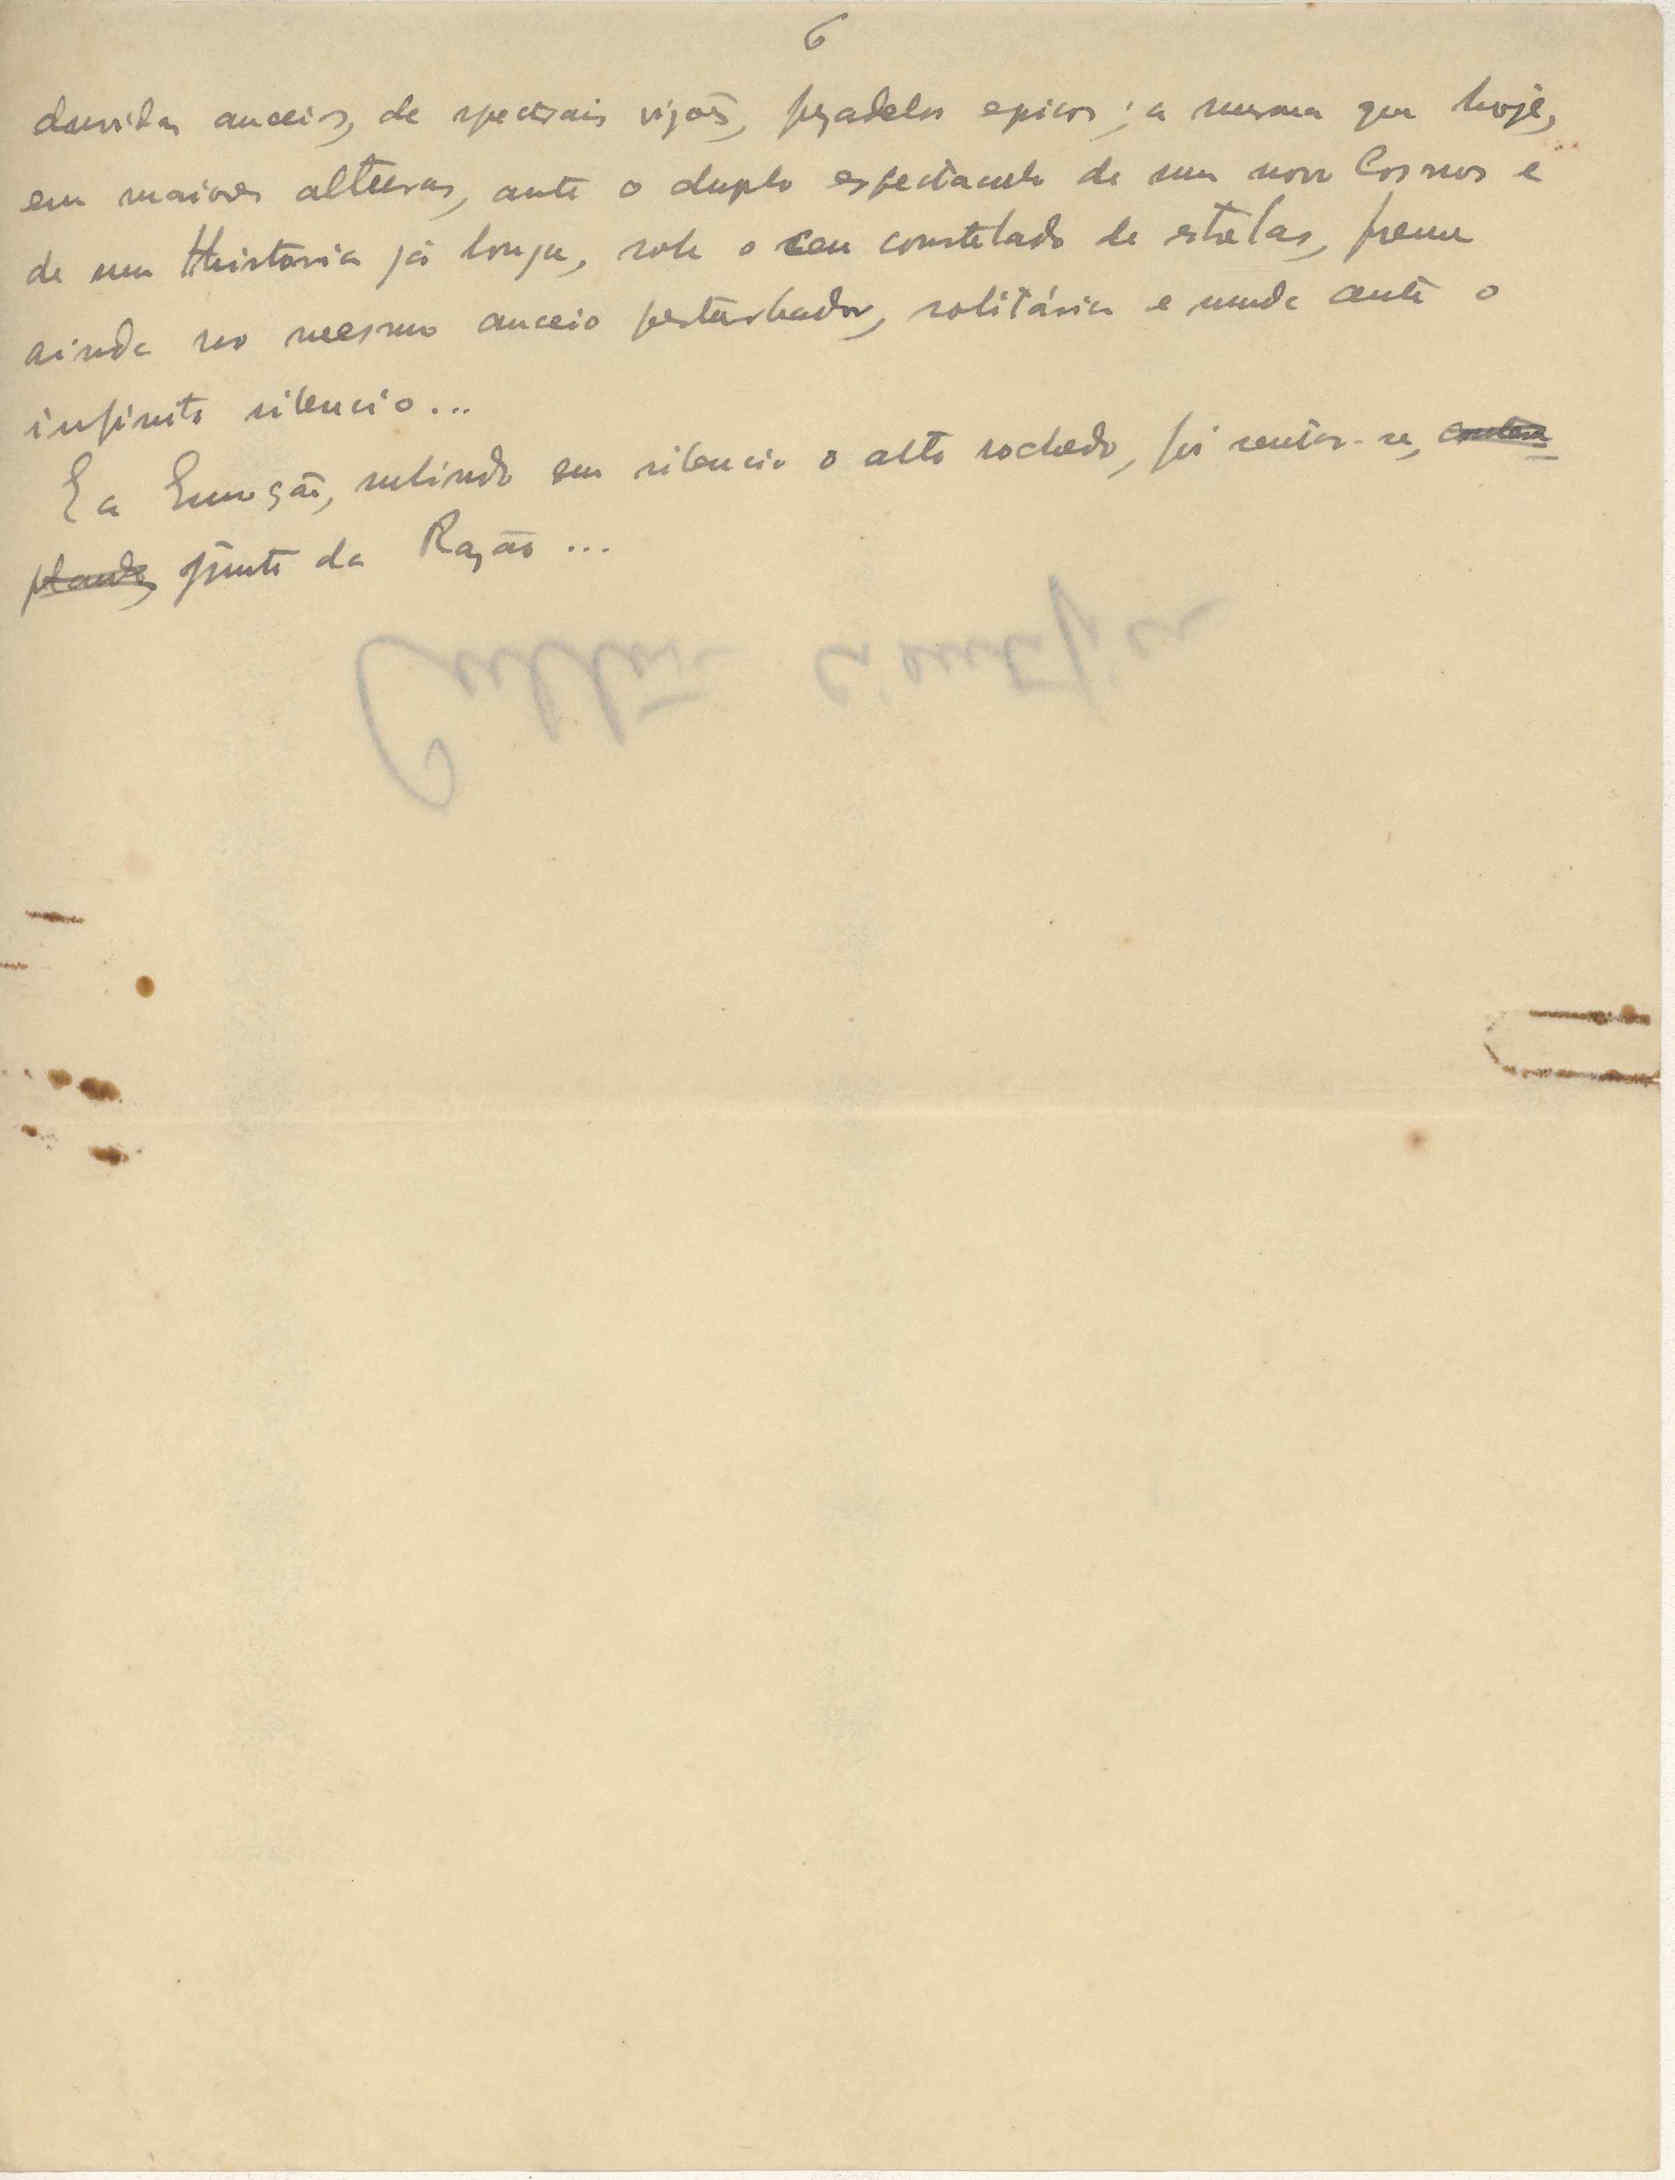 6
duvidas anceios, de spectrais visões, pezadelos epicos; a mesma que hoje,
em maiores alturas, ante o duplo espectaculo de um novo Cosmos e
de uma Historia já longa, sob o ceu constelado de estrelas, freme
ainda no mesmo anceio perturbador, solitária e muda ante o
infinito silencio...
E a Emoção, subindo em silencio o alto rochedo, foi sentar-se, contem
plando, junto da Razão...
Cultura cientifica